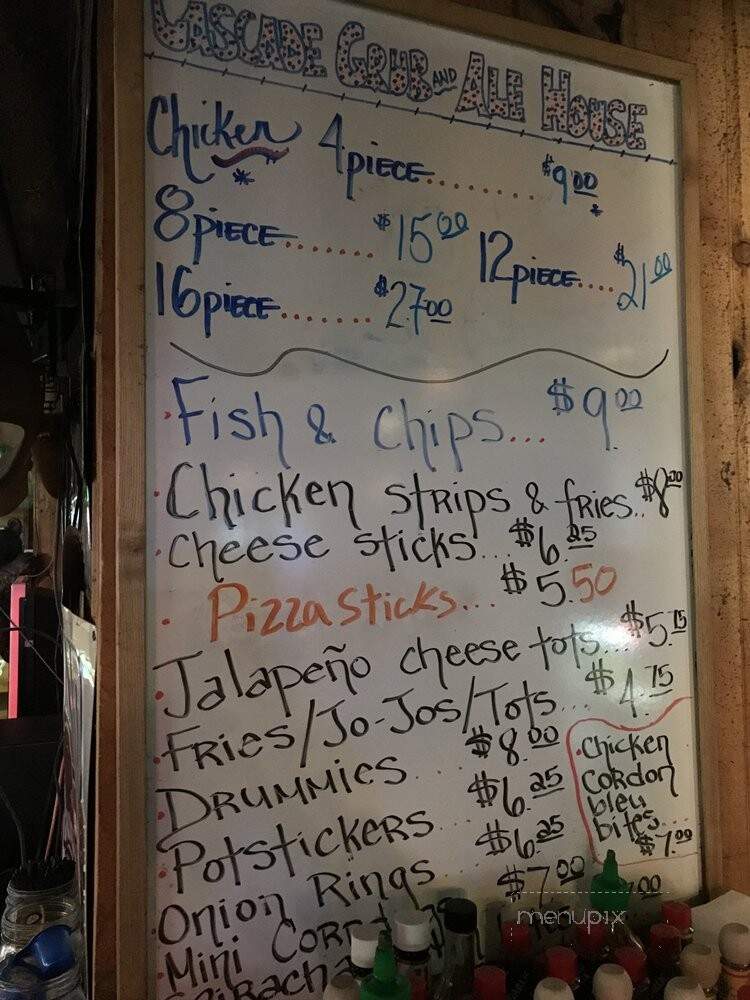 CASCADE GRUB AND ALE HOUSE
Chicken 4 piece........ $9.00
*
*
8 piece....... $15.00
12 piece.... $21.00
16 piece....... $27.00
· Fish & chips... $9.00
· Chicken strips & fries.. $8.00
· cheese sticks... $6.25
· Pizza sticks... $5.50
· Jalapeño cheese tots... $5.75
· Fries/Jo-Jos/Tots... $4.75
· Drummies... $8.00
· Potstickers.. $6.25
· Onion Rings $6.25
· Mini Corn $7.00
Sriracha
· Chicken
cordon
bleu
bites...
$7.00
menupix